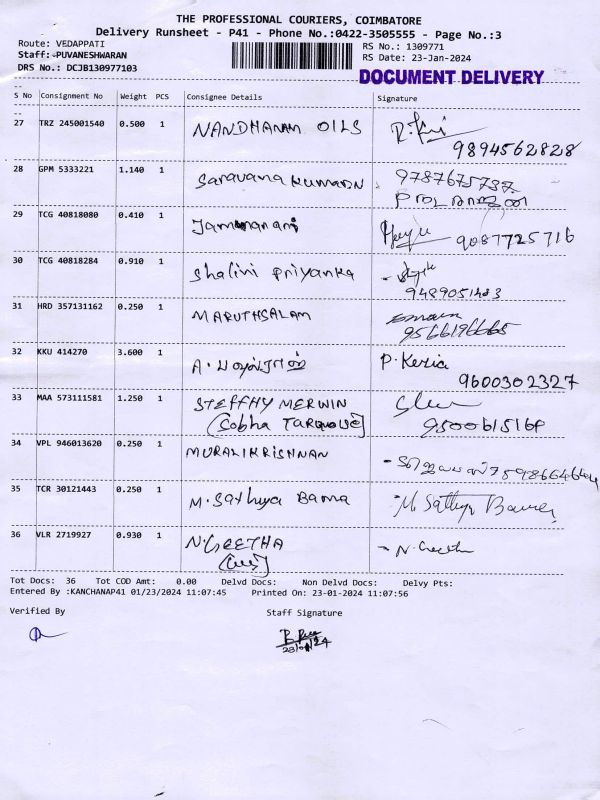 THE PROFESSIONAL COURIERS, COIMBATORE
Delivery Runsheet - P41 - Phone No.:0422-3505555 - Page No.:3
Route: VEDAPPATI RS No.: 1309771
Staff:-PUVANESHWARAN RS Date: 23-Jan-2024
DRS No.: DCJB130977103 DOCUMENT DELIVERY
S No Consignment No Weight PCS Consignee Details Signature
27 TRZ 245001540 0.500 1 NANDHANAM OILS
9894562828
28 GPM 5333221 1.140 1 Saravana Kumaran
29 TCG 40818080 0.410 1 9087725716
30 TCG 40818284 0.910 1 Shalini Priyanka
31 HRD 357131162 0.250 1 MARUTHSALAM
32 KKU 414270 3.600 1 P. Kezia
9600302327
33 MAA 573111581 1.250 1 STEFFHY MERWIN
34 VPL 946013620 0.250 1 MURALIKRISHNAN
35 TCR 30121443 0.250 1 M. Sathya Bama M. Sathya Bama
36 VLR 2719927 0.930 1 N. GEETHA N. Geetha
Tot Docs: 36 Tot COD Amt: 0.00 Delvd Docs: Non Delvd Docs: Delvy Pts:
Entered By :KANCHANAP41 01/23/2024 11:07:45 Printed On: 23-01-2024 11:07:56
Verified By Staff Signature
23/01/24